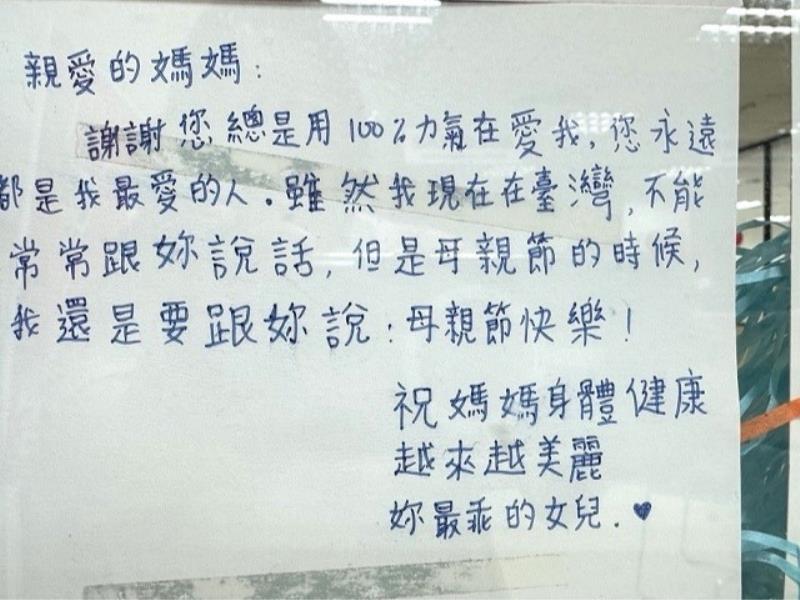 親愛的媽媽:
謝謝您總是用100%力氣在愛我,您永遠
都是我最愛的人。雖然我現在在臺灣,不能
常常跟妳說話,但是母親節的時候,
我還是要跟妳說:母親節快樂!
祝媽媽身體健康
越來越美麗
妳最乖的女兒.♥